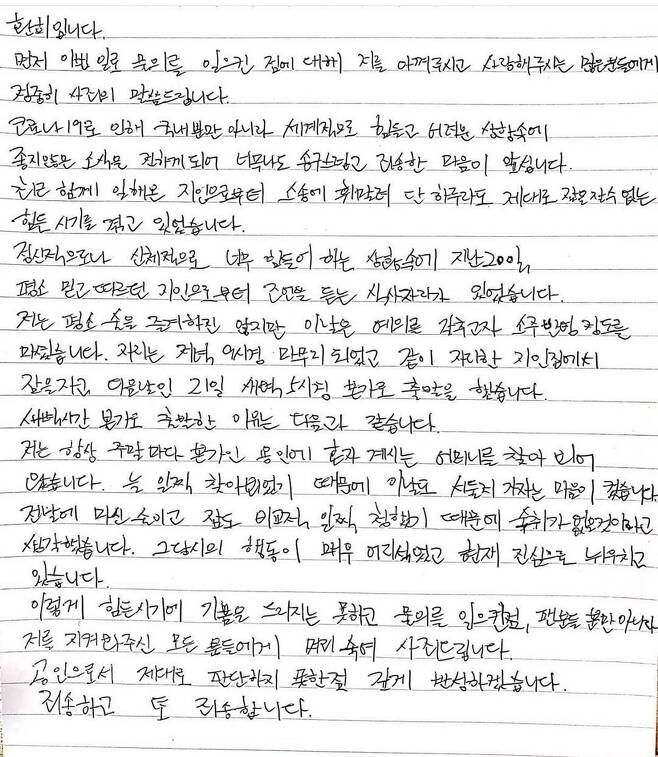 환희입니다.
먼저 이번 일로 물의를 일으킨 점에 대해 저를 아껴주시고 사랑해주시는 많은분들에게
정중히 사죄의 말씀드립니다.
코로나19로 인해 국내뿐만 아니라 세계적으로 힘들고 어려운 상황속에
좋지않은 소식을 전하게 되어 너무나도 송구스럽고 죄송한 마음이 앞섭니다.
최근 함께 일해온 지인으로부터 소송에 휘말려 단 하루라도 제대로 잠을 잘수 없는
힘든 시기를 겪고 있었습니다.
정신적으로나 신체적으로 너무 힘들어 하는 상황속에 지난 20일,
평소 믿고 따르던 지인으로부터 조언을 듣는 식사자리가 있었습니다.
저는 평소 술을 즐겨하진 않지만 이날은 예의를 갖추고자 소주 반병 정도를
마셨습니다. 자리는 저녁 9시경 마무리 되었고 같이 자리한 지인집에서
잠을자고 다음날인 21일 새벽 5시경 본가로 출발을 했습니다.
새벽시간 본가로 출발한 이유는 다음과 같습니다.
저는 항상 주말마다 본가인 용인에 혼자 계시는 어머니를 찾아 뵈어
왔습니다. 늘 일찍 찾아뵈었기 때문에 이날도 서둘러 가자는 마음이 컸습니다
전날에 마신 술이고 잠도 비교적 일찍 청했기 때문에 숙취가 없을것이라고
생각했습니다. 그당시의 행동이 매우 어리석었고 현재 진심으로 뉘우치고
있습니다.
이렇게 힘든시기에 기쁨을 드리지는 못하고 물의를 일으킨점, 팬분들 뿐만 아니라
저를 지켜봐주신 모든 분들에게 머리 숙여 사죄드립니다.
공인으로서 제대로 판단하지 못한점 깊게 반성하겠습니다.
죄송하고 또 죄송합니다.